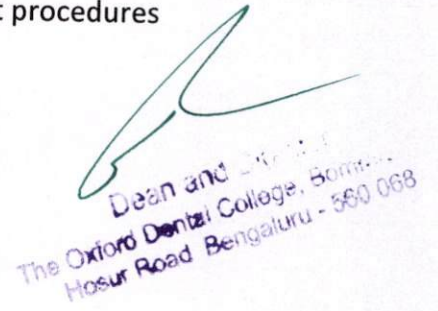 t procedures
Dean and
The Oxford Dental College, Bomm
Hosur Road Bengaluru - 560 068